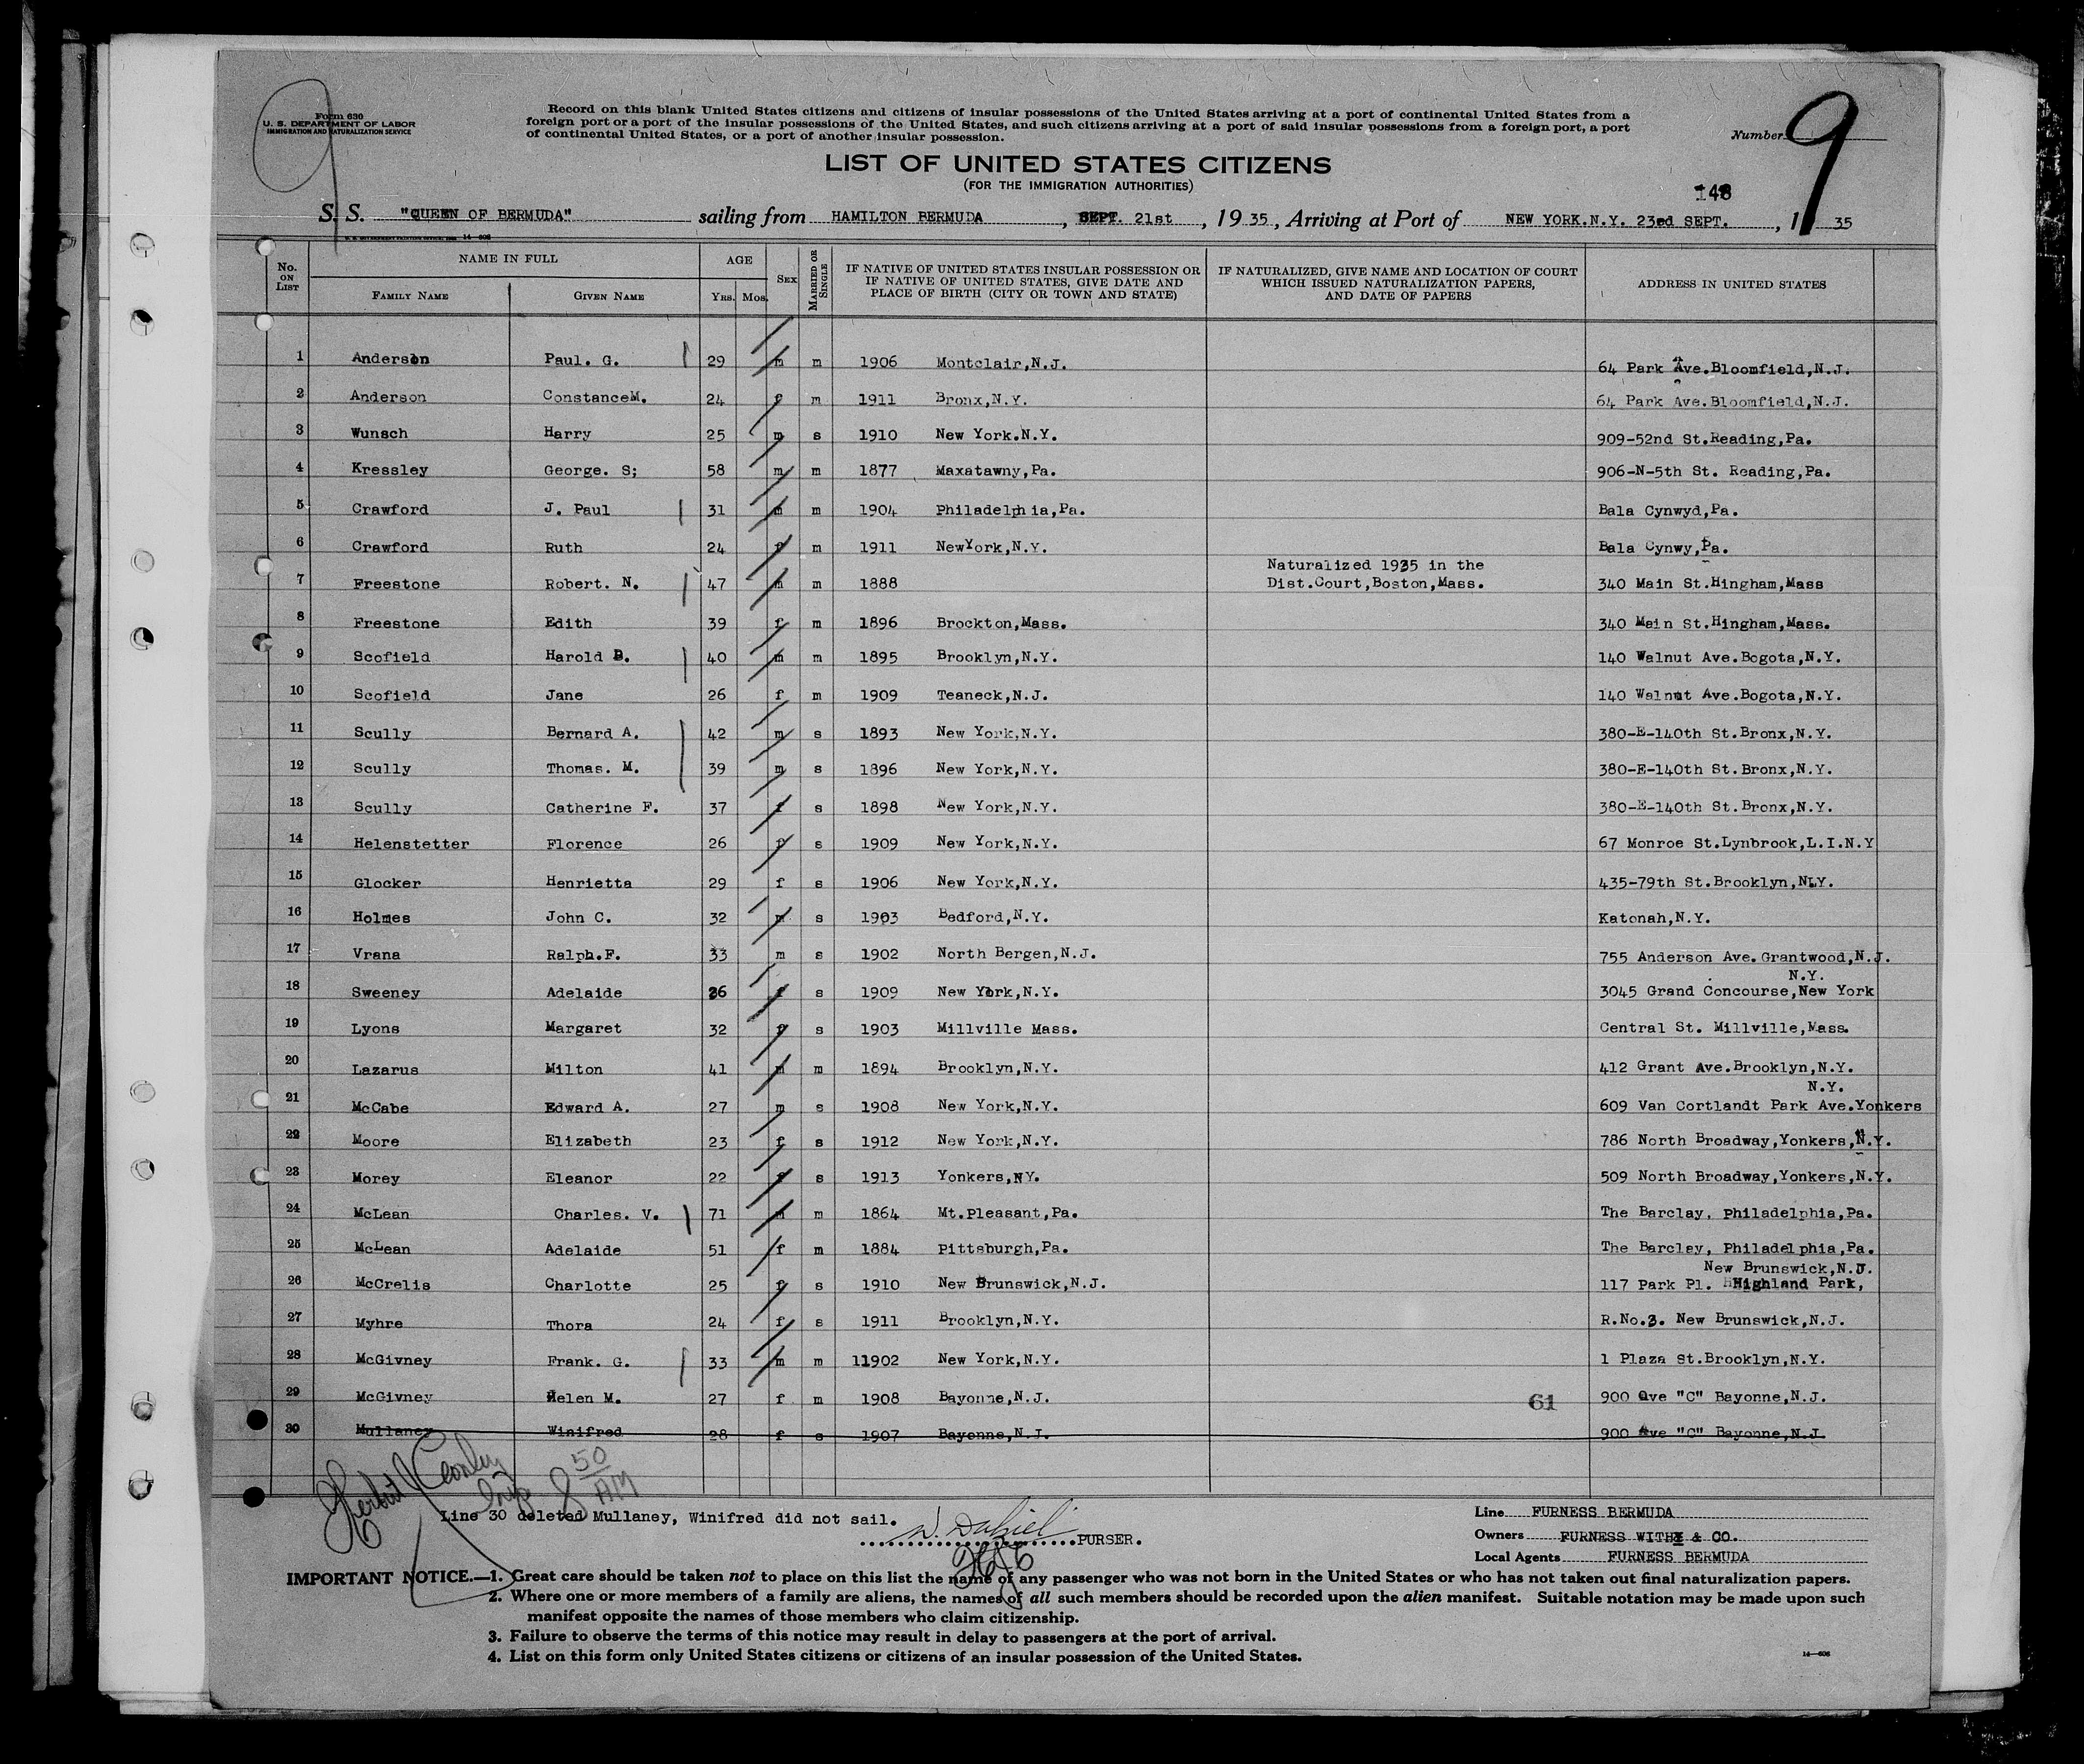 9
Form 630
U. S. DEPARTMENT OF LABOR
IMMIGRATION AND NATURALIZATION SERVICE
Record on this blank United States citizens and citizens of insular possessions of the United States arriving at a port of continental United States from a
foreign port or a port of the insular possessions of the United States, and such citizens arriving at a port of said insular possessions from a foreign port, a port
of continental United States, or a port of another insular possession.
Number 9
LIST OF UNITED STATES CITIZENS
(FOR THE IMMIGRATION AUTHORITIES)
148
S. S. "QUEEN OF BERMUDA" sailing from HAMILTON BERMUDA, SEPT. 21st, 19 35, Arriving at Port of NEW YORK.N.Y. 23ed SEPT., 1 35
No. ON LIST NAME IN FULL FAMILY NAME GIVEN NAME AGE YRS. MOS. SEX MARRIED OR SINGLE IF NATIVE OF UNITED STATES INSULAR POSSESSION OR IF NATIVE OF UNITED STATES, GIVE DATE AND PLACE OF BIRTH (CITY OR TOWN AND STATE) IF NATURALIZED, GIVE NAME AND LOCATION OF COURT WHICH ISSUED NATURALIZATION PAPERS, AND DATE OF PAPERS ADDRESS IN UNITED STATES
1 Anderson Paul. G. 29 m m 1906 Montclair,N.J. 64 Park Ave.Bloomfield,N.J.
2 Anderson ConstanceM. 24 f m 1911 Bronx,N.Y. 64 Park Ave.Bloomfield,N.J.
3 Wunsch Harry 25 m s 1910 New York.N.Y. 909-52nd St.Reading,Pa.
4 Kressley George. S; 58 m m 1877 Maxatawny,Pa. 906-N-5th St. Reading,Pa.
5 Crawford J. Paul 31 m m 1904 Philadelphia,Pa. Bala Cynwyd,Pa.
6 Crawford Ruth 24 f m 1911 NewYork,N.Y. Bala Cynwy,Pa.
Naturalized 1935 in the
7 Freestone Robert. N. 47 m m 1888 Dist.Court,Boston,Mass. 340 Main St.Hingham,Mass
8 Freestone Edith 39 f m 1896 Brockton,Mass. 340 Main St.Hingham,Mass.
9 Scofield Harold B. 40 m m 1895 Brooklyn,N.Y. 140 Walnut Ave.Bogota,N.Y.
10 Scofield Jane 26 f m 1909 Teaneck,N.J. 140 Walnut Ave.Bogota,N.Y.
11 Scully Bernard A. 42 m s 1893 New York,N.Y. 380-E-140th St.Bronx,N.Y.
12 Scully Thomas. M. 39 m s 1896 New York,N.Y. 380-E-140th St.Bronx,N.Y.
13 Scully Catherine F. 37 f s 1898 New York,N.Y. 380-E-140th St.Bronx,N.Y.
14 Helenstetter Florence 26 f s 1909 New York,N.Y. 67 Monroe St.Lynbrook,L.I.N.Y
15 Glocker Henrietta 29 f s 1906 New York,N.Y. 435-79th St.Brooklyn,N.Y.
16 Holmes John C. 32 m s 1903 Bedford,N.Y. Katonah,N.Y.
17 Vrana Ralph.F. 33 m s 1902 North Bergen,N.J. 755 Anderson Ave.Grantwood,N.J.
N.Y.
18 Sweeney Adelaide 26 f s 1909 New York,N.Y. 3045 Grand Concourse,New York
19 Lyons Margaret 32 f s 1903 Millville Mass. Central St. Millville,Mass.
20 Lazarus Milton 41 m m 1894 Brooklyn,N.Y. 412 Grant Ave.Brooklyn,N.Y.
N.Y.
21 McCabe Edward A. 27 m s 1908 New York,N.Y. 609 Van Cortlandt Park Ave.Yonkers
22 Moore Elizabeth 23 f s 1912 New York,N.Y. 786 North Broadway,Yonkers,N.Y.
23 Morey Eleanor 22 f s 1913 Yonkers,NY. 509 North Broadway,Yonkers,N.Y.
24 McLean Charles. V. 71 m m 1864 Mt.Pleasant,Pa. The Barclay, Philadelphia,Pa.
25 McLean Adelaide 51 f m 1884 Pittsburgh,Pa. The Barclay, Philadelphia,Pa.
New Brunswick,N.J.
26 McCrelis Charlotte 25 f s 1910 New Brunswick,N.J. 117 Park Pl. Highland Park,
27 Myhre Thora 24 f s 1911 Brooklyn,N.Y. R.No.3. New Brunswick,N.J.
28 McGivney Frank. G. 33 m m 11902 New York,N.Y. 1 Plaza St.Brooklyn,N.Y.
29 McGivney Helen M. 27 f m 1908 Bayonne,N.J. 61 900 Ave "C" Bayonne,N.J.
30 Mullaney Winifred 28 f s 1907 Bayonne,N.J. 900 Ave "C" Bayonne,N.J.
8 50 AM
Line 30 deleted Mullaney, Winifred did not sail.
PURSER.
Line FURNESS BERMUDA
Owners FURNESS WITHY & CO.
Local Agents FURNESS BERMUDA
IMPORTANT NOTICE.—1. Great care should be taken not to place on this list the name of any passenger who was not born in the United States or who has not taken out final naturalization papers.
2. Where one or more members of a family are aliens, the names of all such members should be recorded upon the alien manifest. Suitable notation may be made upon such
manifest opposite the names of those members who claim citizenship.
3. Failure to observe the terms of this notice may result in delay to passengers at the port of arrival.
4. List on this form only United States citizens or citizens of an insular possession of the United States.